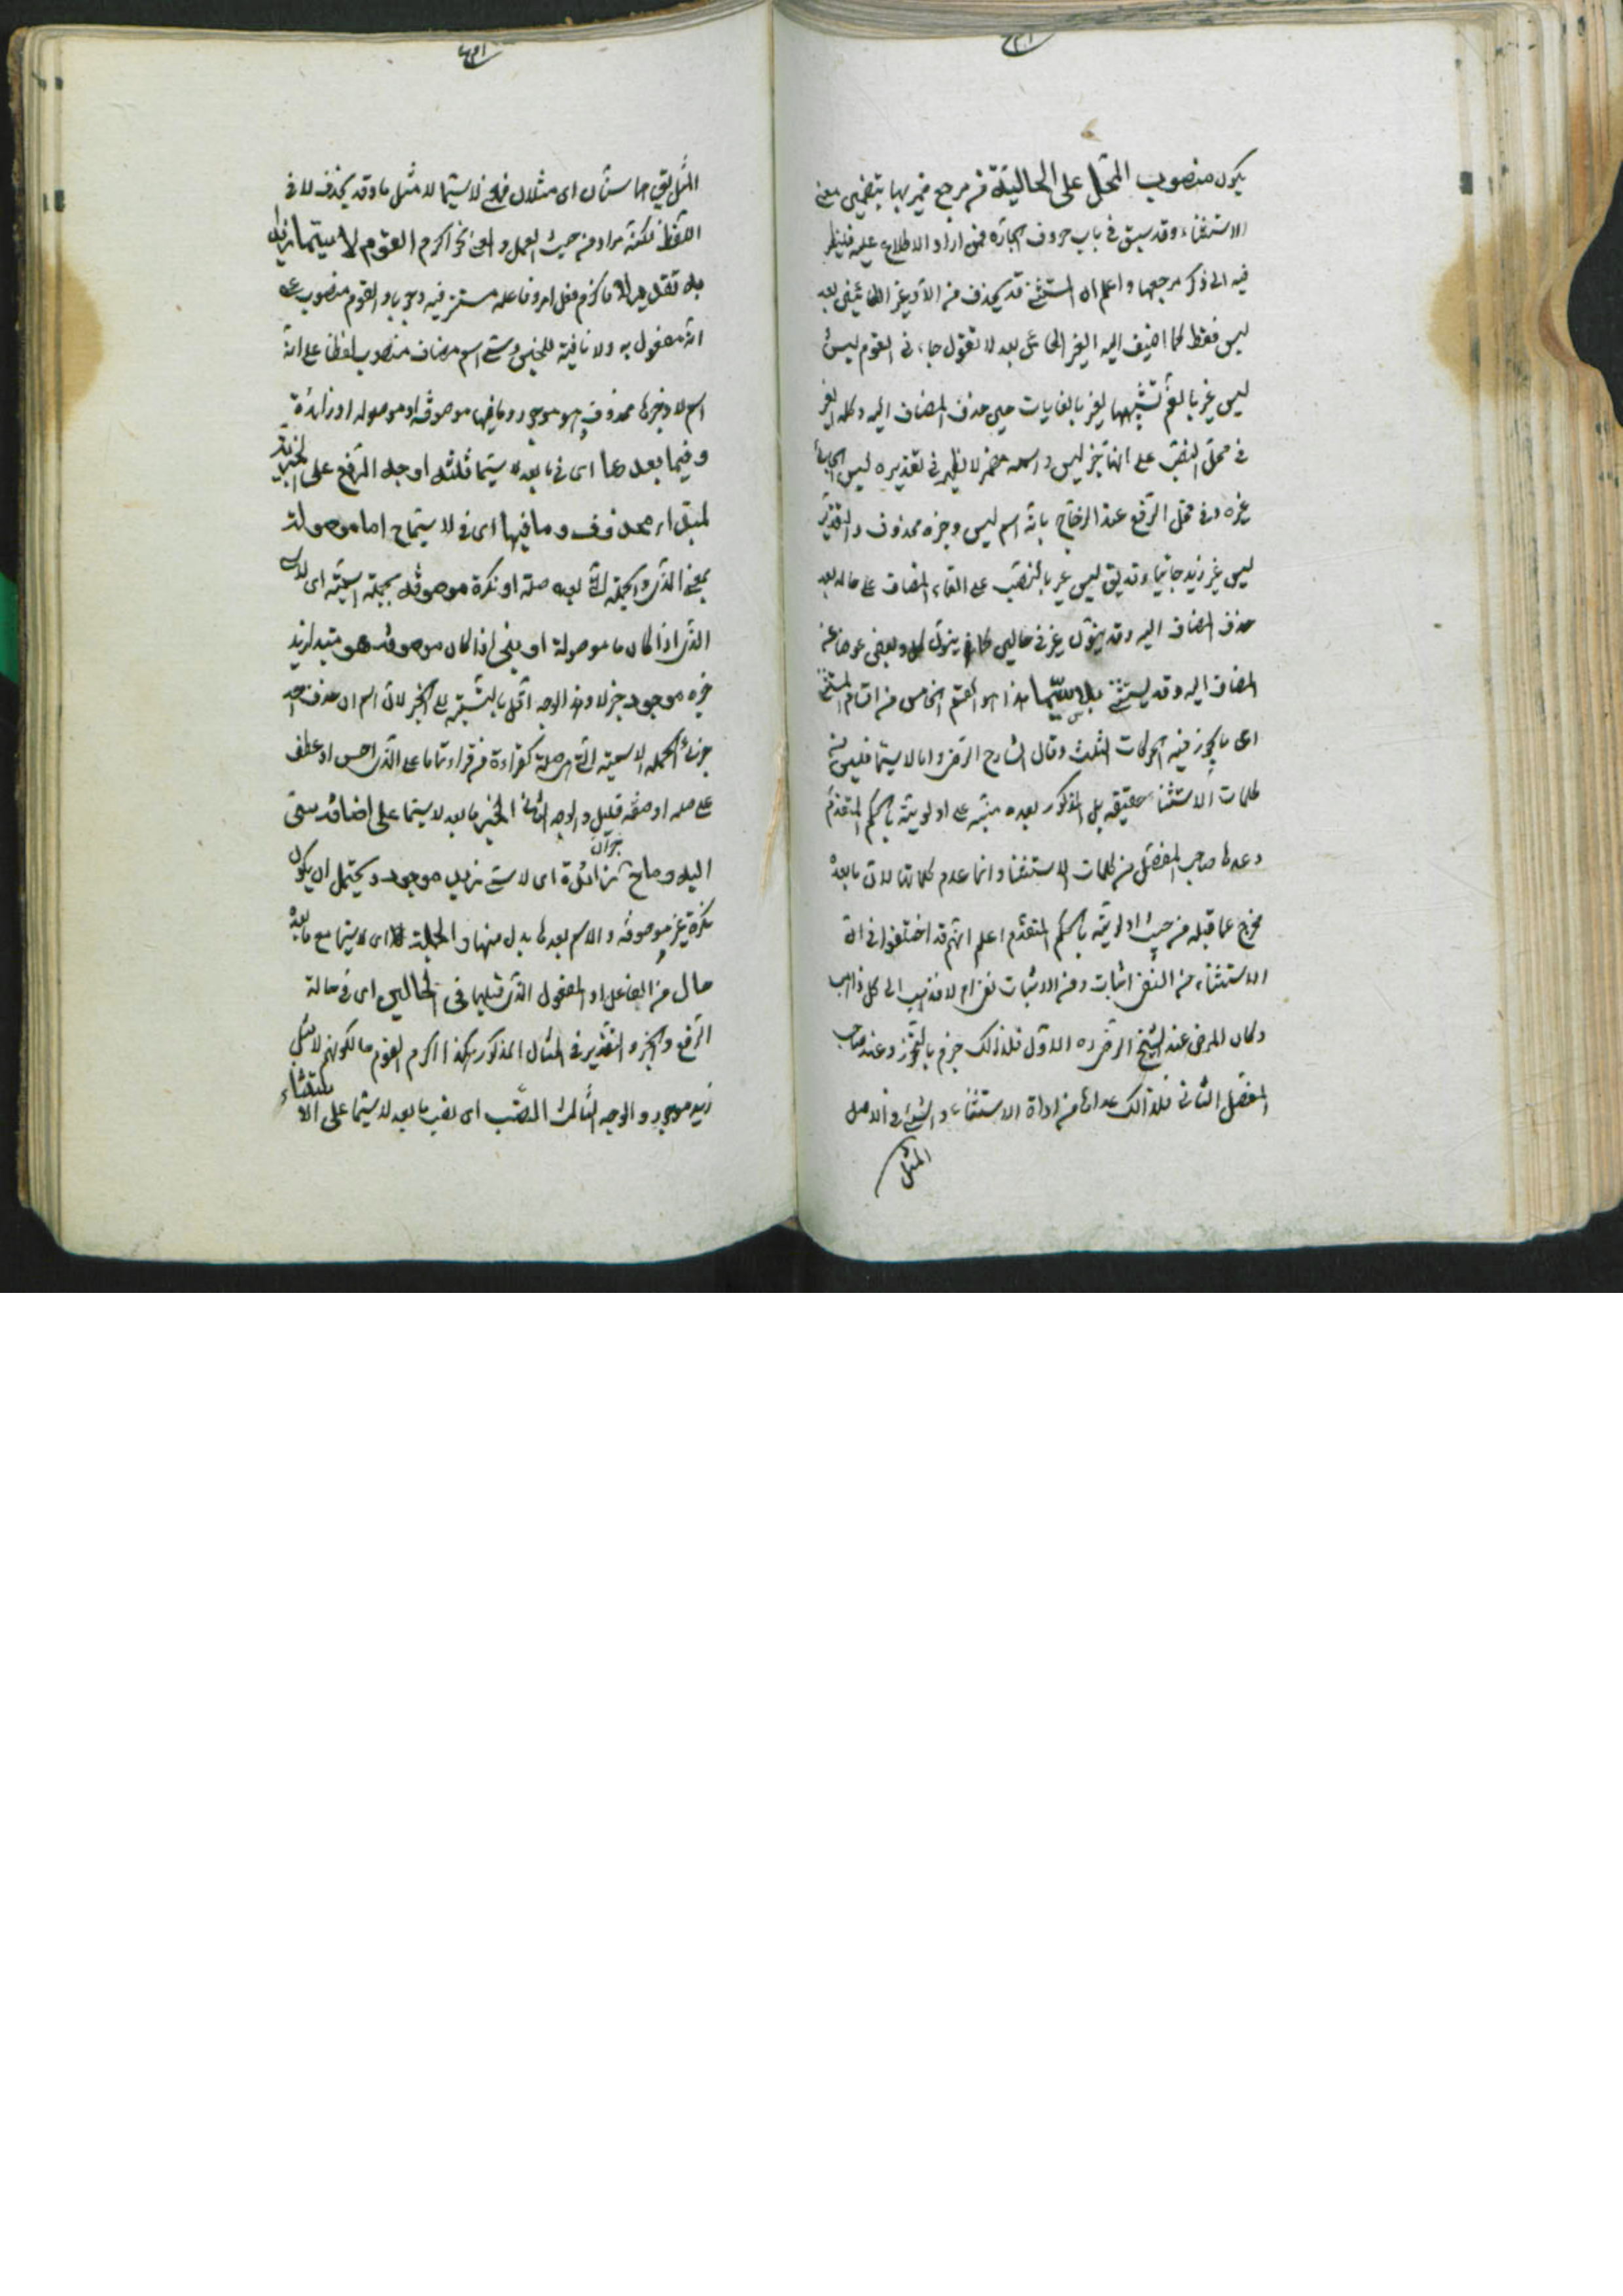 يكون منصوب المحل على الحالية في مرجع ضميريهما بتضمين معنى
الاستثناء وقد سبق في باب حروف الجارة فمن اراد الاطلاع عليه فلينظر
فيه الى ذكر مرجعهما واعلم ان المستثنى قد يحذف من الا وغير الكائنين بعد
ليس فقط كما اضيف اليه الغير الكائن بعد لا تقول جاءني القوم ليس الا
ليس غير بالضم لتشبيهها لغير بالغايات حين حذف المضاف اليه وكلمة الغير
في محل النصب على انها خبر ليس واسمه مضمر لا يظهر في تقديره ليس الجائي
غيره وفي محل الرفع عند الزجاج بانه اسم ليس وخبره محذوف والتقدير
ليس غير زيد جائيا وقد يق ليس غير بالنصب على القاء المضاف على حاله بعد
حذف المضاف اليه وقد ينون غير في حالين كما ينون كل وبعض عوضا عن
المضاف اليه وقد يستثنى بلا سيما هذا هو القسم الخامس من اقسام المستثنى
اى ما يجوز فيه الحركات الثلث وقال الشارح الرضى واما لا سيما فليس من
كلمات الاستثناء حقيقة بل المذكور بعده منبه على اولويته بالحكم المتقدم
وعدها صاحب المفصل من كلمات الاستثناء وانما عدم كلماتها لان ما بعده
مخرج عما قبله من حيث اولويته بالحكم المتقدم اعلم انهم قد اختلفوا في ان
الاستثناء من النفى اثبات ومن الاثبات نفى ام لا فذهب الى كل ذاهب
وكان المرضى عند الشيخ الرضى ره الاول فلذلك جزم بالتجوز وعند صاحب
المفصل الثاني فلذالك عدها من اداة الاستثناء والسى في الاصل
المثل
المثل يق هما سيان اى مثلان فمعنى لا سيما لا مثل ما وقد يحذف لا في
اللفظ لكنه مراد من حيث العمل والمعنى نحو اكرم القوم لا سيما زيدا
فاكرم فعل امر وفاعله مستتر فيه وجوبا والقوم منصوب على
انه مفعول به ولا نافية للجنس وسى اسم مضاف منصوب لفظا على انه
اسم لا وخبرها محذوف وهو موجود وما فيها موصوفة او موصولة او زائدة
وفيما بعدها اى في ما بعد لا سيما ثلثة اوجه الرفع على الخبرية
لمبتداء محذوف وما فيها اى في لا سيما ح اما موصولة
بمعنى الذى والجملة التى بعده صلة او نكرة موصوفة بجملة اسمية اى لا سى
الذى اذا كان ما موصولة او شئ اذا كان موصوفة هو مبتدا زيد
خبره موجود خبر لا وهذا الوجه اقل بالنسبة الى الجر لان اسم ان حذف احد
جزئى الجملة الاسمية التى هى صلة كقراءة من قرأ تماما على الذى احسن او عطف
على صلة او صفة قليل والوجه الثانى الجر ما بعد لا سيما على اضافة سى
اليه وما ح زائدة اى لا سى زيد موجود ويحتمل ان يكون
نكرة غير موصوفة والاسم بعدها بدل منها والجملة اى لا سيما مع ما بعده
حال من الفاعل او المفعول الذى قبلها في الحالين اى في حالة
الرفع والجر والتقدير في المثال المذكور هكذا اكرم القوم حالكونهم لا مثل
زيد موجود والوجه الثالث النصب اى نصب ما بعد لا سيما على الاستثناء